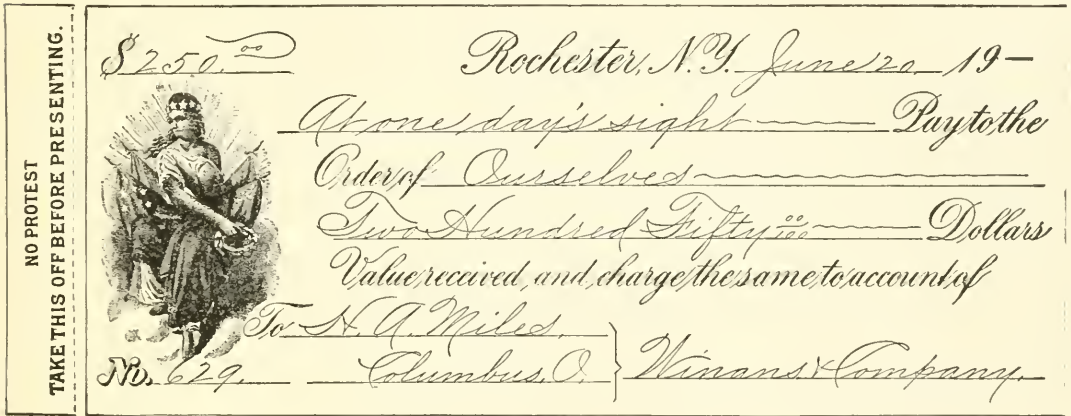 NO PROTEST
TAKE THIS OFF BEFORE PRESENTING.
$250.00 Rochester, N.Y. June 20 19—
At one day's sight —— Pay to the
Order of Ourselves
Two Hundred Fifty 00/100 —— Dollars
Value received, and charge the same to account of
To H. A. Miles,
No. 629. Columbus, O. } Winans & Company.